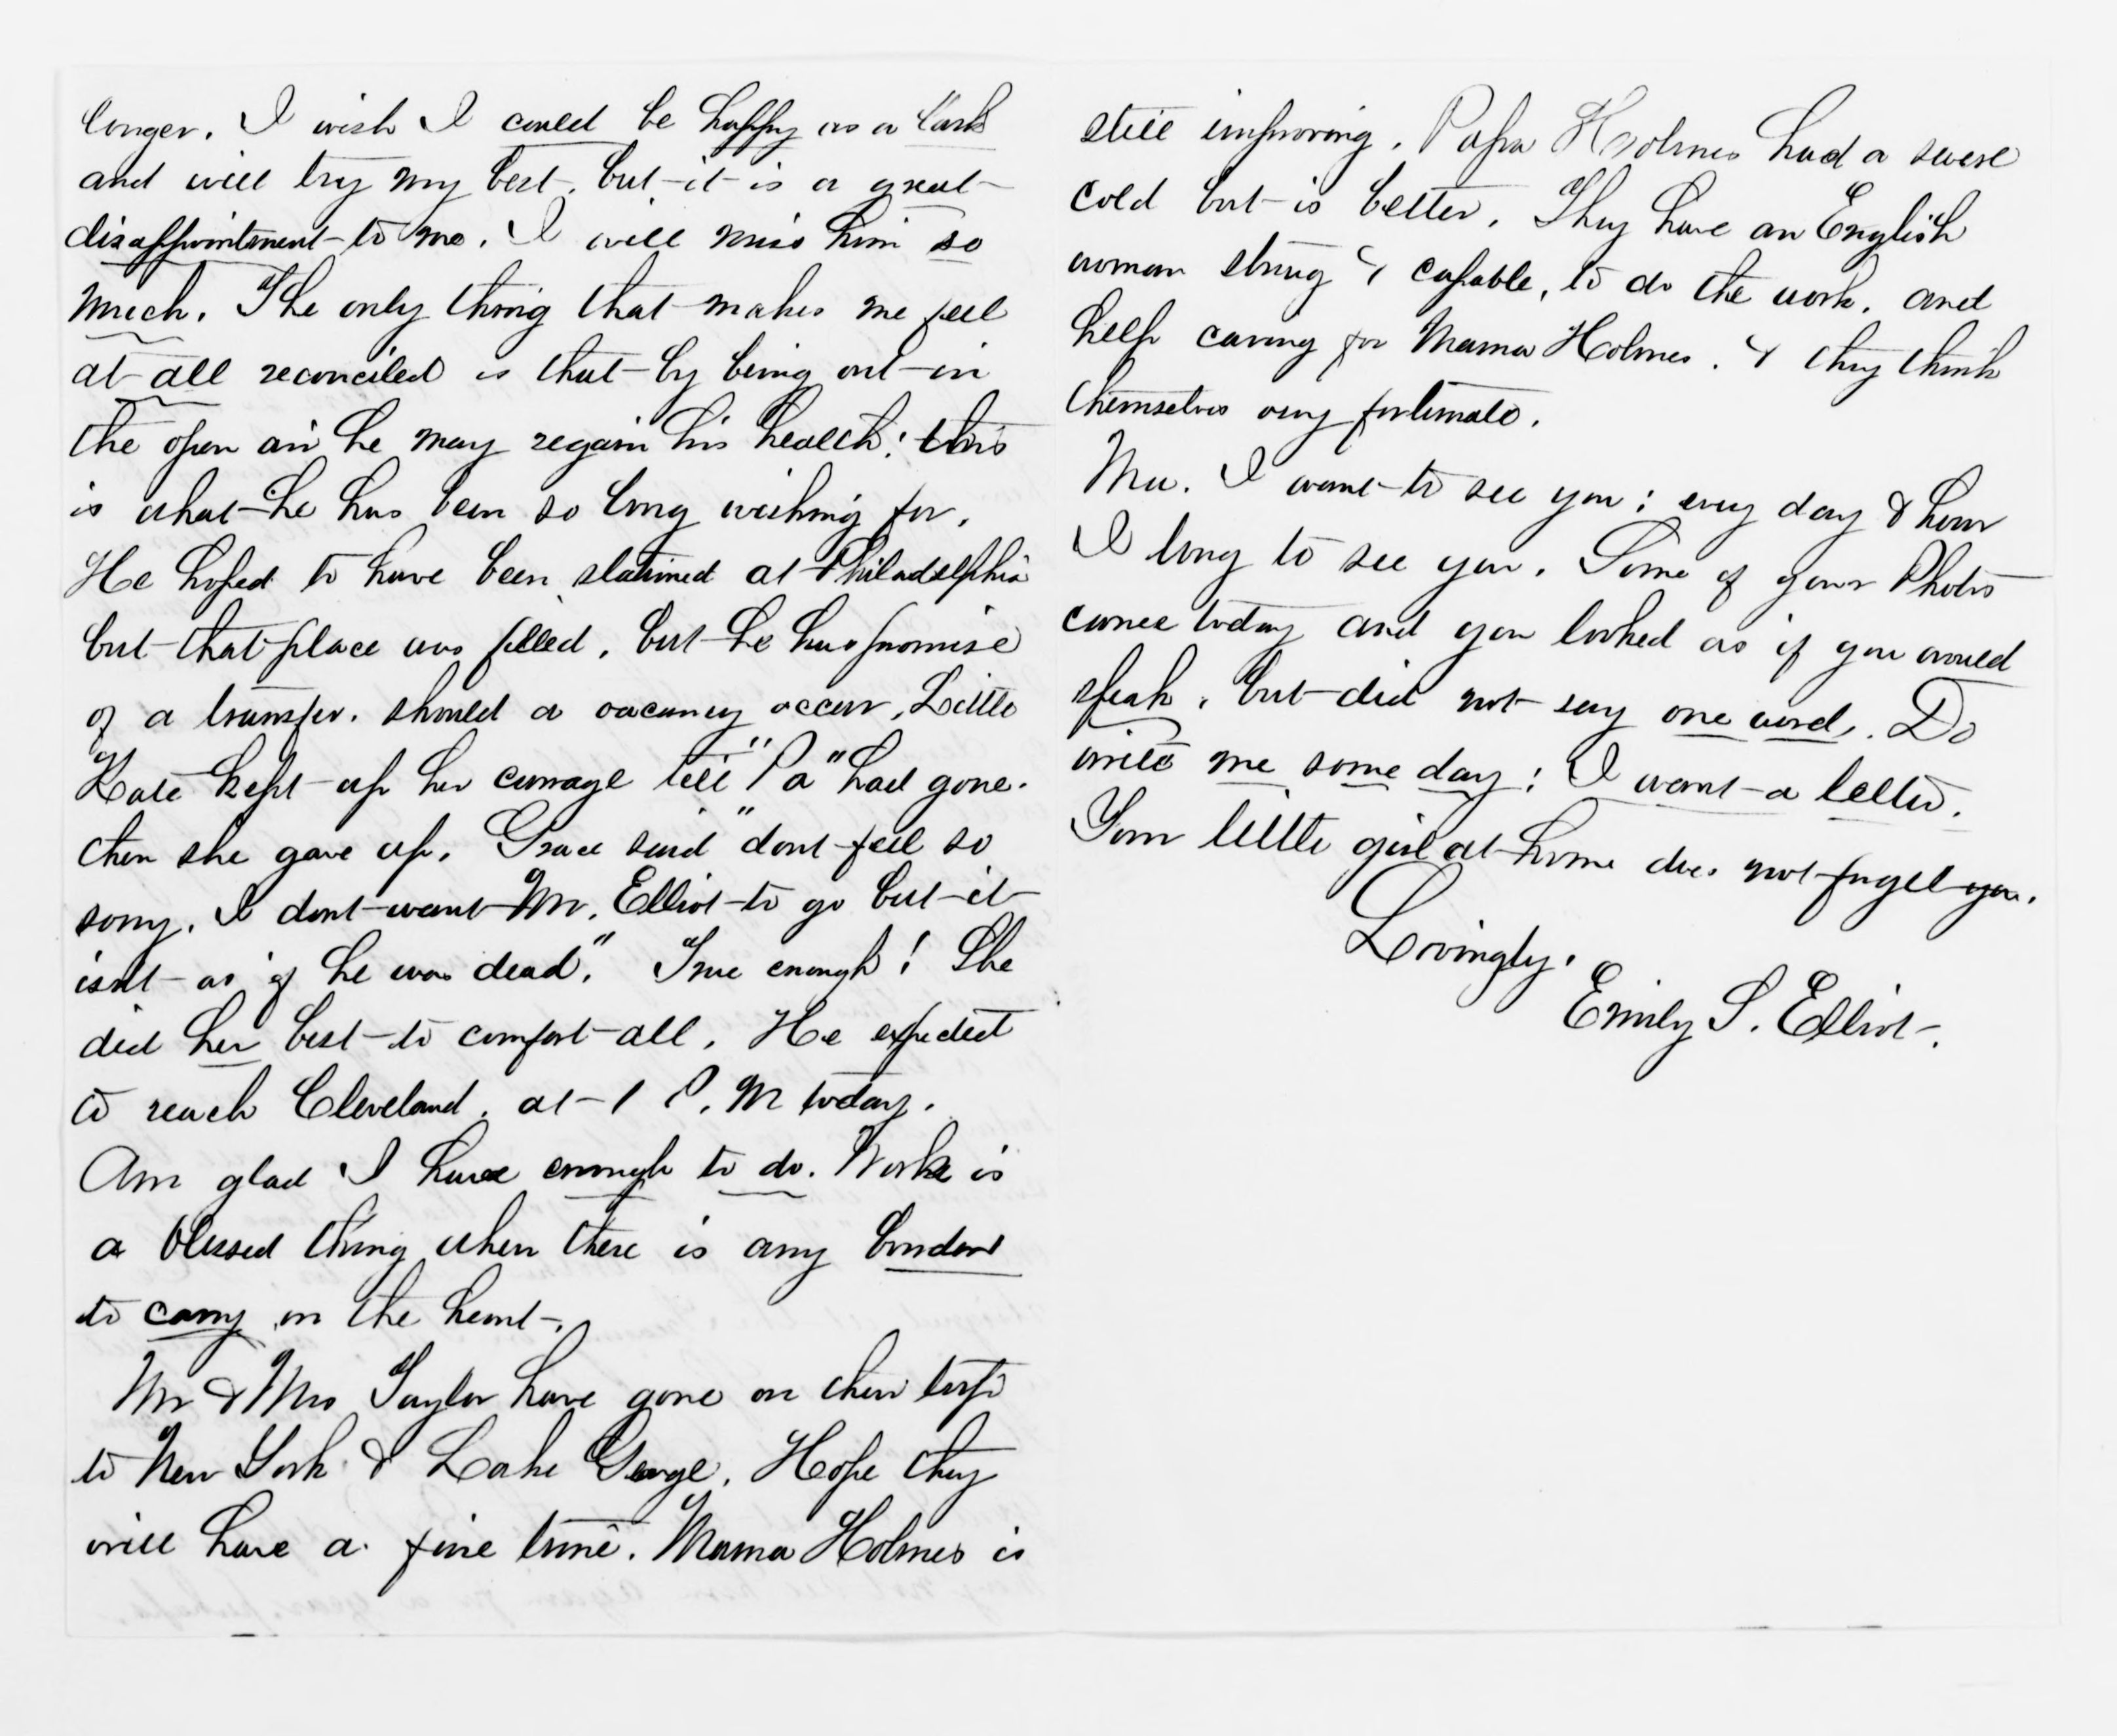 longer. I wish I could be happy as a lark
and will try my best, but it is a great
disappointment to me. I will miss him so
much. The only thing that makes me feel
at all reconciled is that by being out in
the open air he may regain his health; this
is what he has been so long wishing for.
He hoped to have been stationed at Philadelphia
but that place was filled, but he has promise
of a transfer, should a vacancy occur. Little
Kate kept up her courage till "Pa" had gone.
then she gave up. Grace said "dont feel so
sorry. I dont want Mr. Elliot to go but it
isnt as if he was dead." True enough! She
did her best to comfort all. He expected
to reach Cleveland, at 1 P.M today.
Am glad I have enough to do. Work is
a blessed thing when there is any burden
to carry in the heart.
Mr & Mrs Taylor have gone on their trip
to New York & Lake George. Hope they
will have a fine time. Mama Holmes is
still improving. Papa Holmes had a severe
cold but is better. They have an English
woman strong & capable, to do the work, and
help caring for Mama Holmes. & they think
themselves very fortunate.
I want to see you; every day & hour
I long to see you. Some of your Photos
came today and you looked as if you would
speak, but did not say one word. Do
write me some day; I want a letter.
Your little girl at home does not forget you.
Lovingly,
Emily S. Elliot.